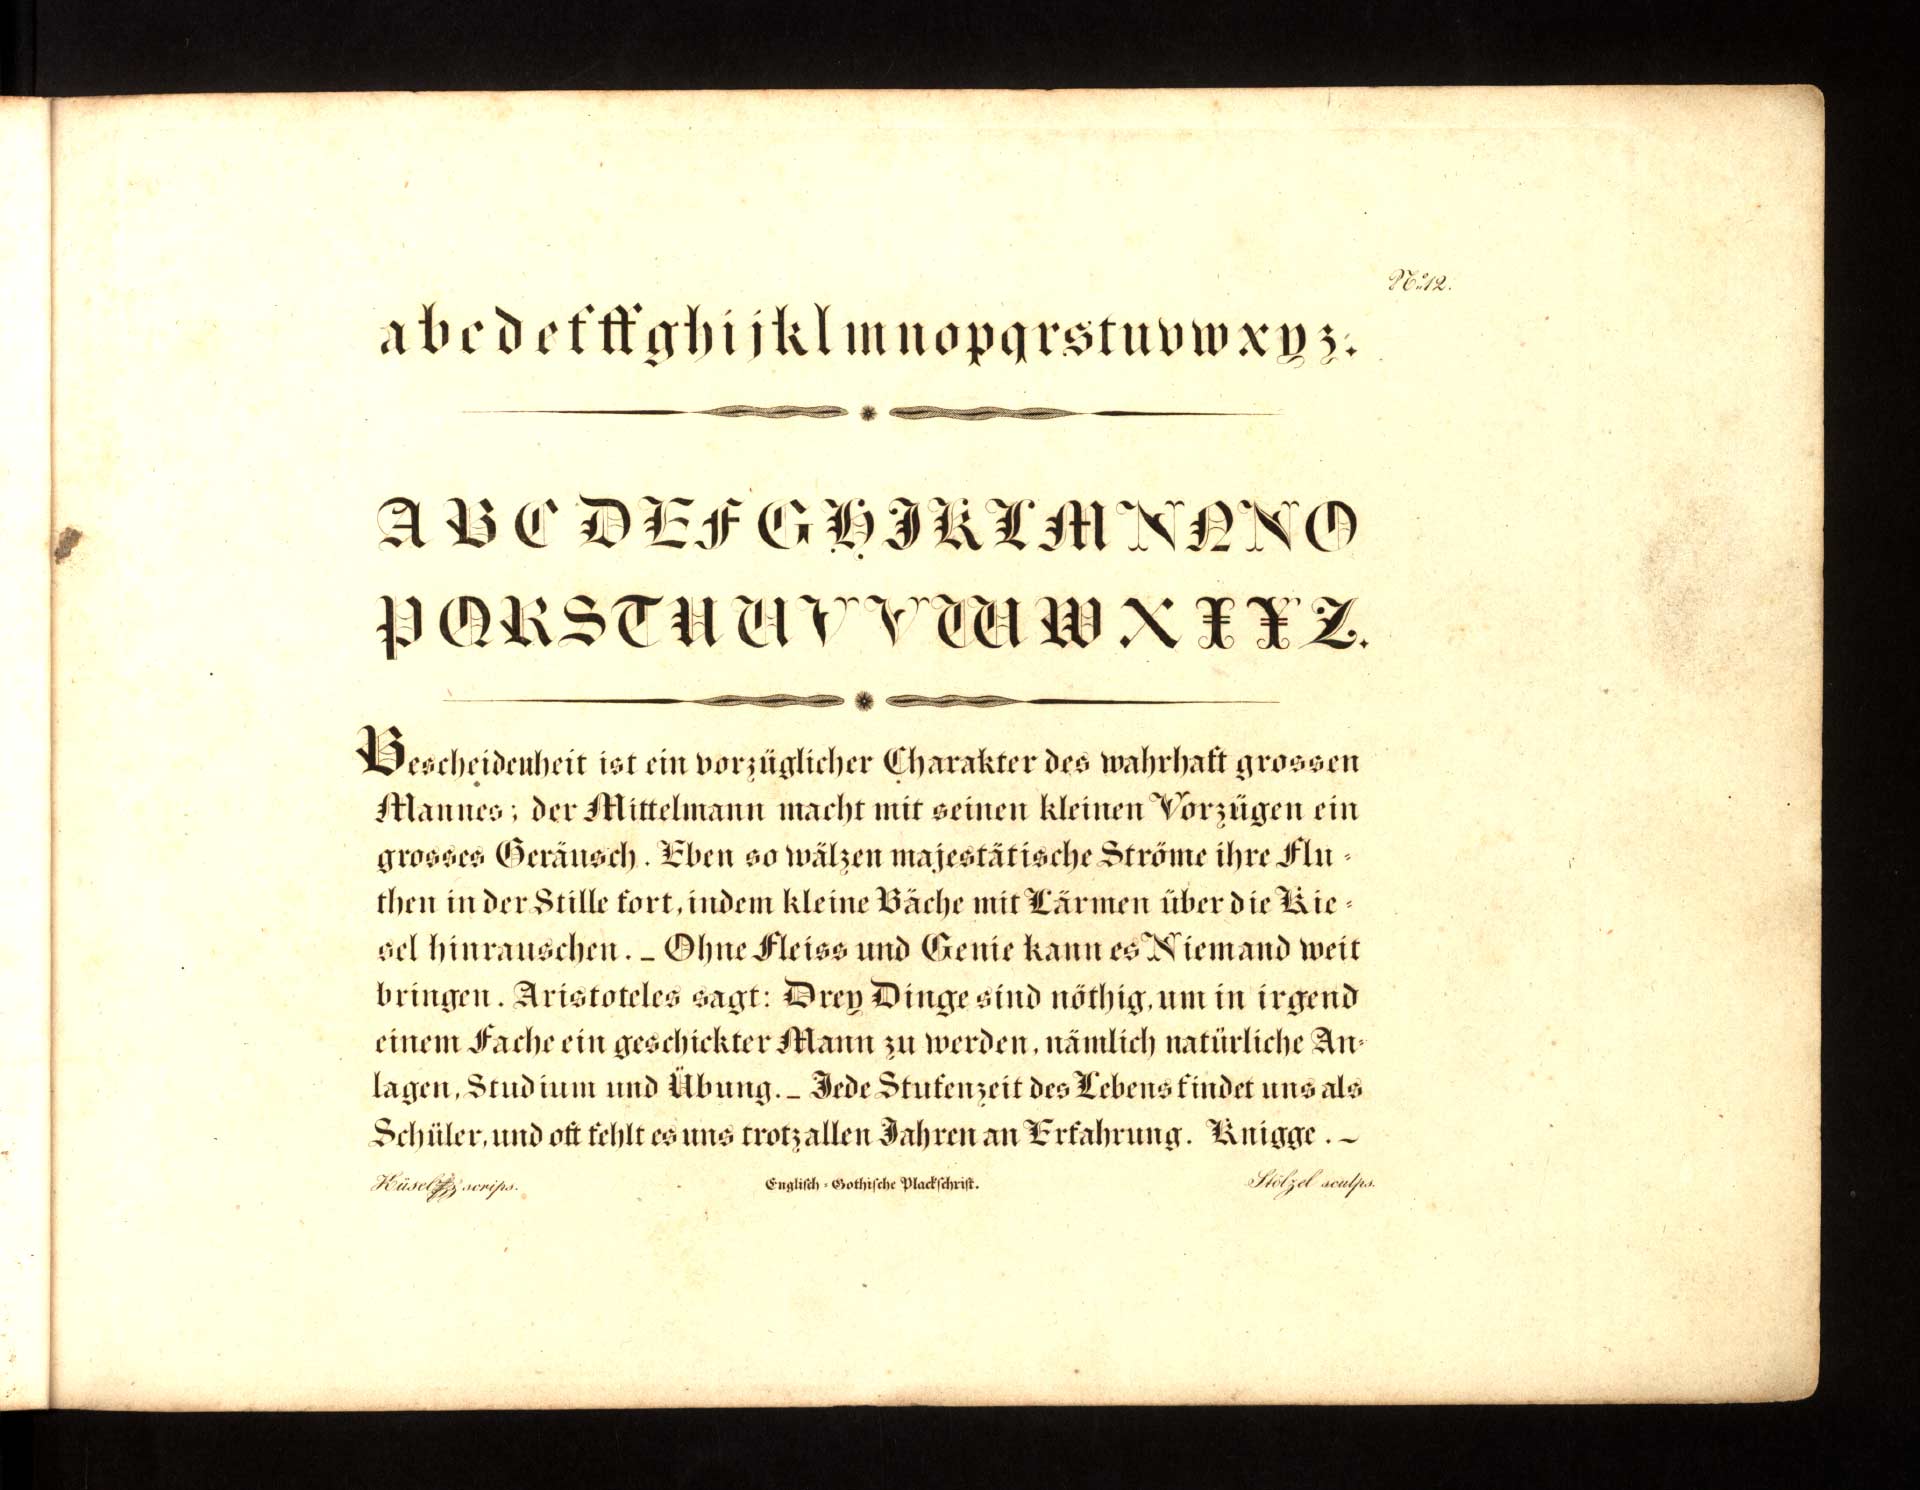 No. 12.
a b c d e f ff g h i j k l m n o p q r s t u v w x y z.
A B C D E F G H I K L M N N N O
P Q R S T U U V V W W X X Y Z.
Bescheidenheit ist ein vorzüglicher Charakter des wahrhaft grossen
Mannes; der Mittelmann macht mit seinen kleinen Vorzügen ein
grosses Geräusch. Eben so wälzen majestätische Ströme ihre Flu-
then in der Stille fort, indem kleine Bäche mit Lärmen über die Kie-
sel hinrauschen. – Ohne Fleiss und Genie kann es Niemand weit
bringen. Aristoteles sagt: Drey Dinge sind nöthig, um in irgend
einem Fache ein geschickter Mann zu werden, nämlich natürliche An-
lagen, Studium und Übung. – Jede Stufenzeit des Lebens findet uns als
Schüler, und oft fehlt es uns trotz allen Jahren an Erfahrung. Knigge. –
Hüsel scrips. Englisch-Gothische Plackschrift. Stölzel sculps.